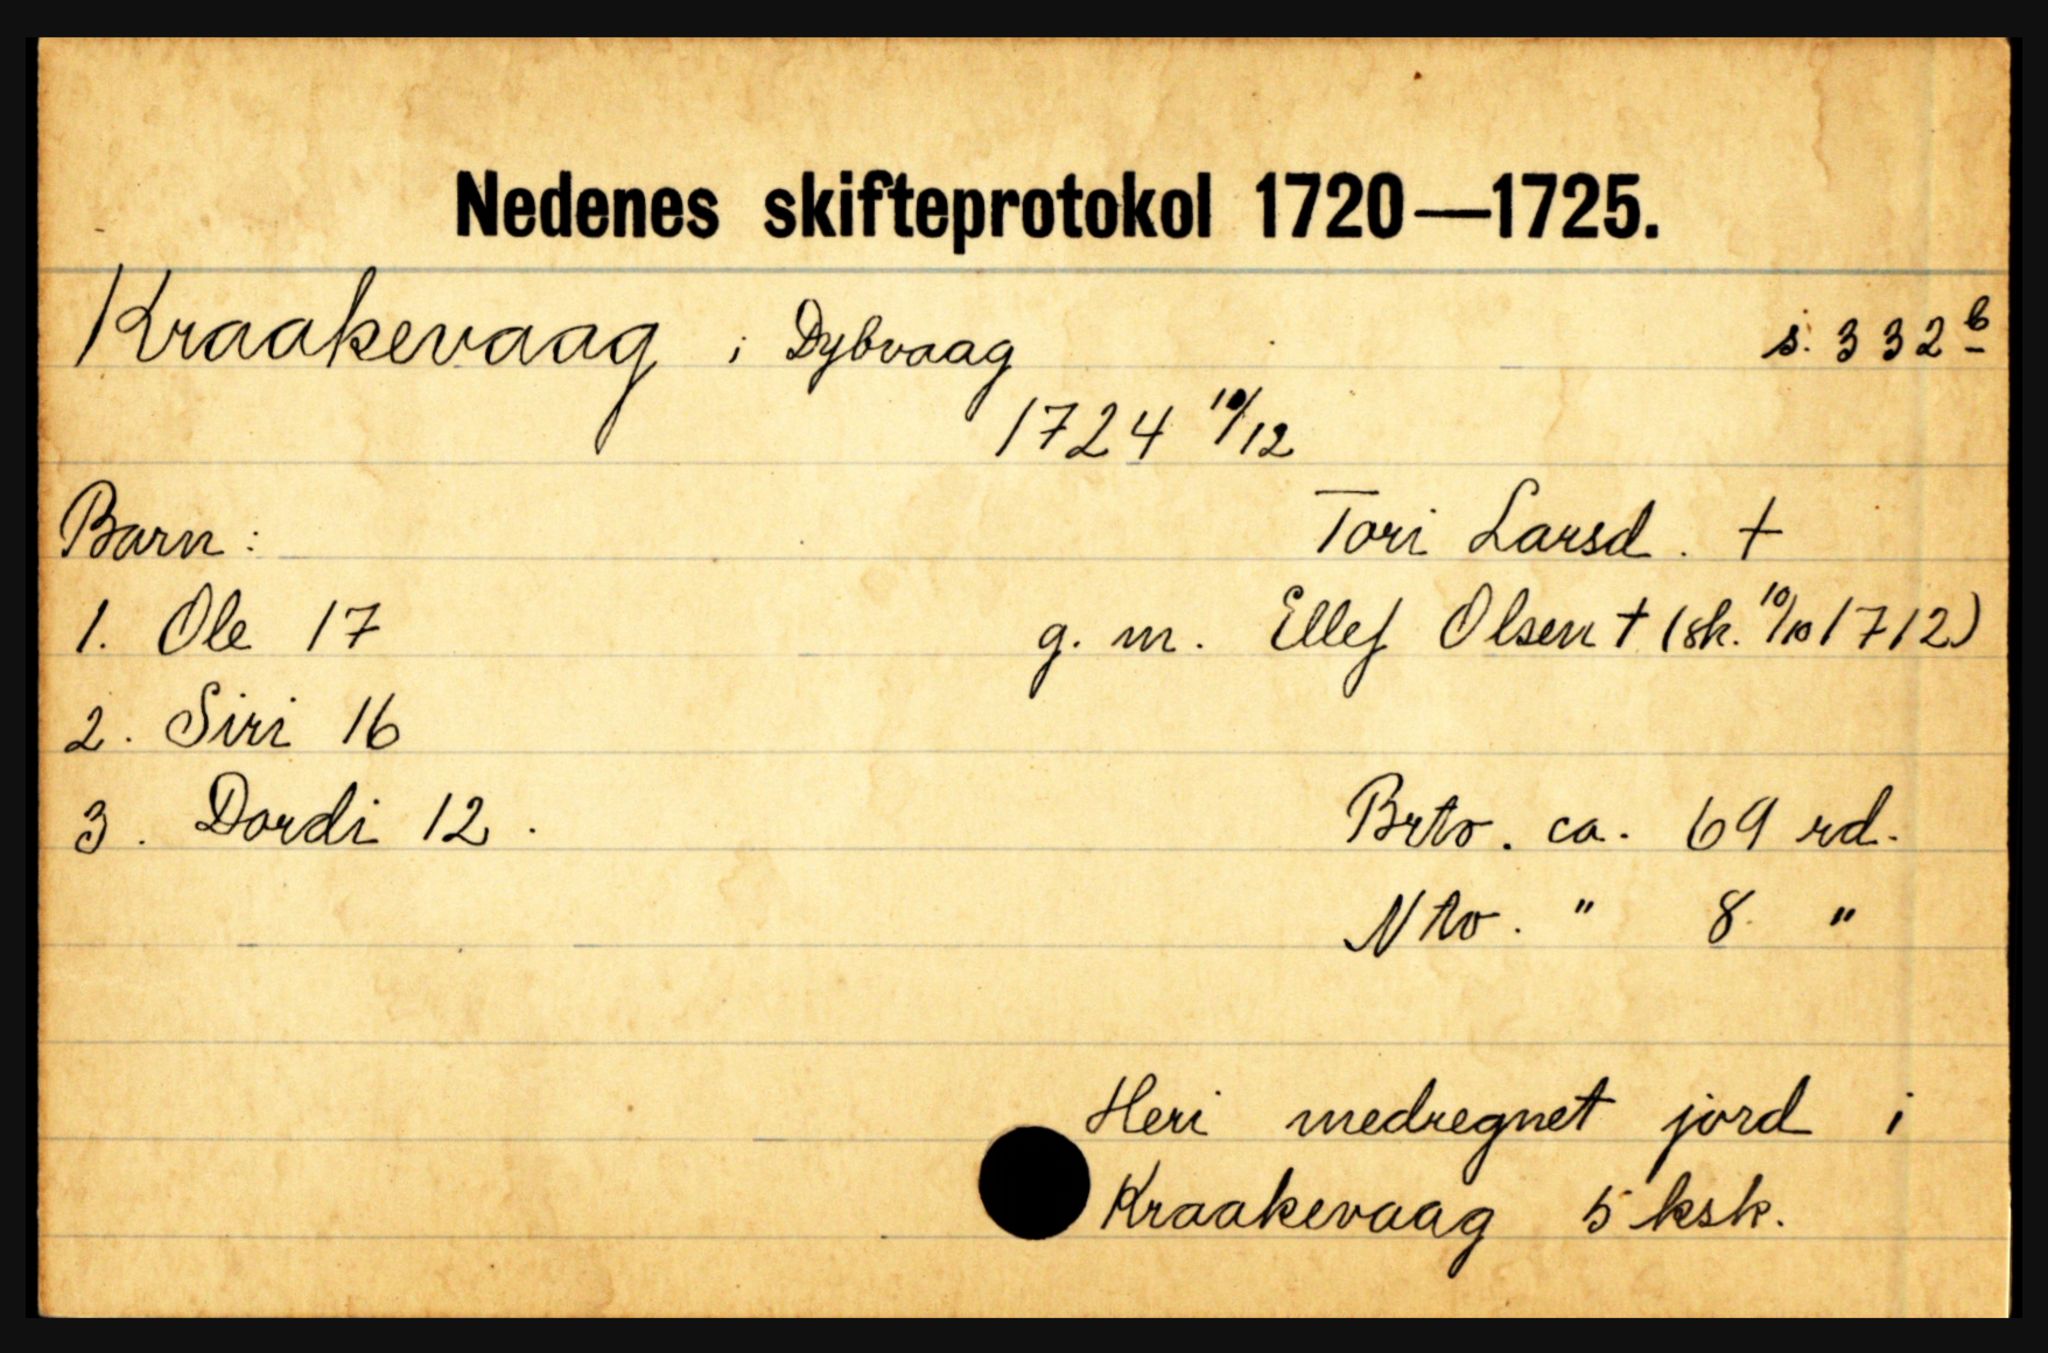 Nedenes skifteprotokol 1720—1725.
Kraakevaag i Dybvaag s. 332 b
1724 10/12
Barn: Tori Larsd. †
1. Ole 17 g. m. Ellef Olsen † (sk. 10/10 1712)
2. Siri 16
3. Dordi 12. Brto. ca. 69 rd.
Nto. " 8 "
Heri medregnet jord i
Kraakevaag 5 ksk.